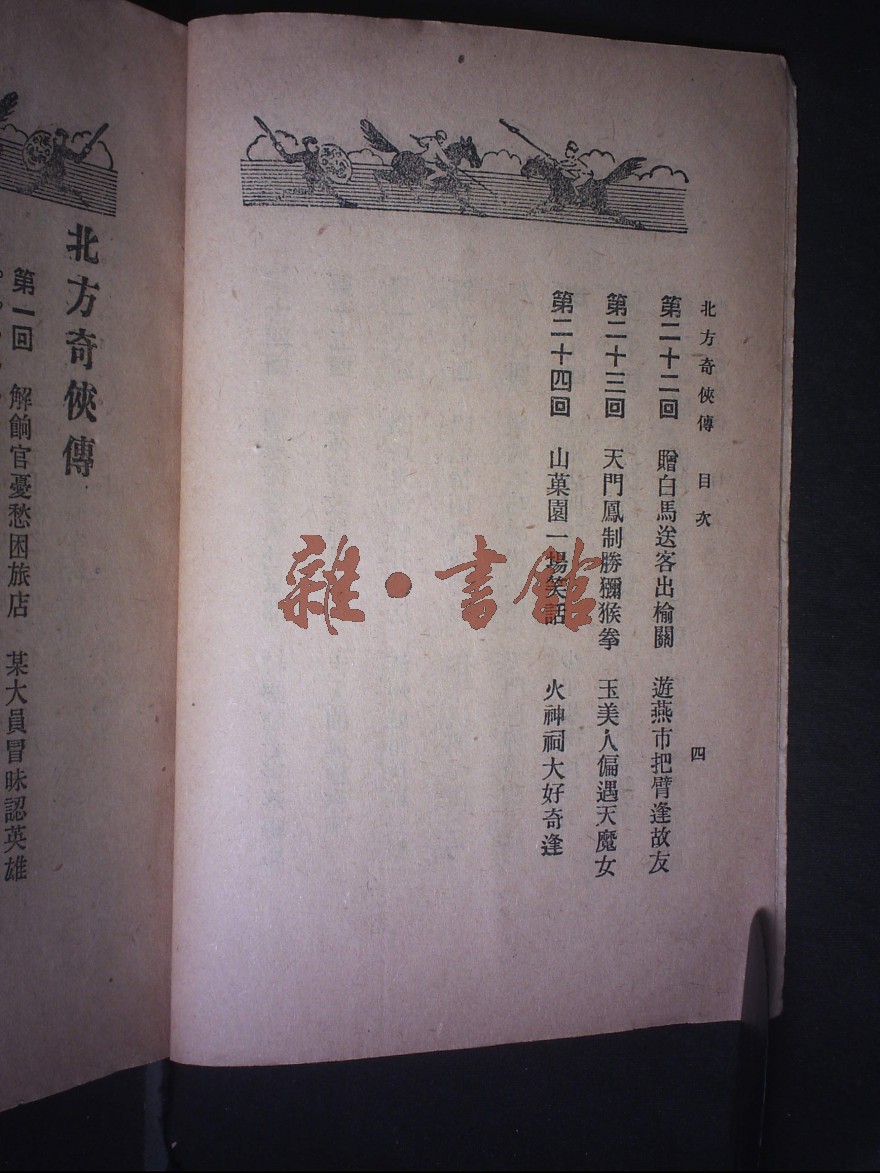 北方奇俠傳 目次 四
第二十二回 贈白馬送客出榆關 遊燕市把臂逢故友
第二十三回 天門鳳制勝獼猴拳 玉美人偏遇天魔女
第二十四回 山菓園一場笑話 火神祠大好奇逢
雜·書館
北方奇俠傳
第一回 解餉官憂愁困旅店 某大員冒昧認英雄